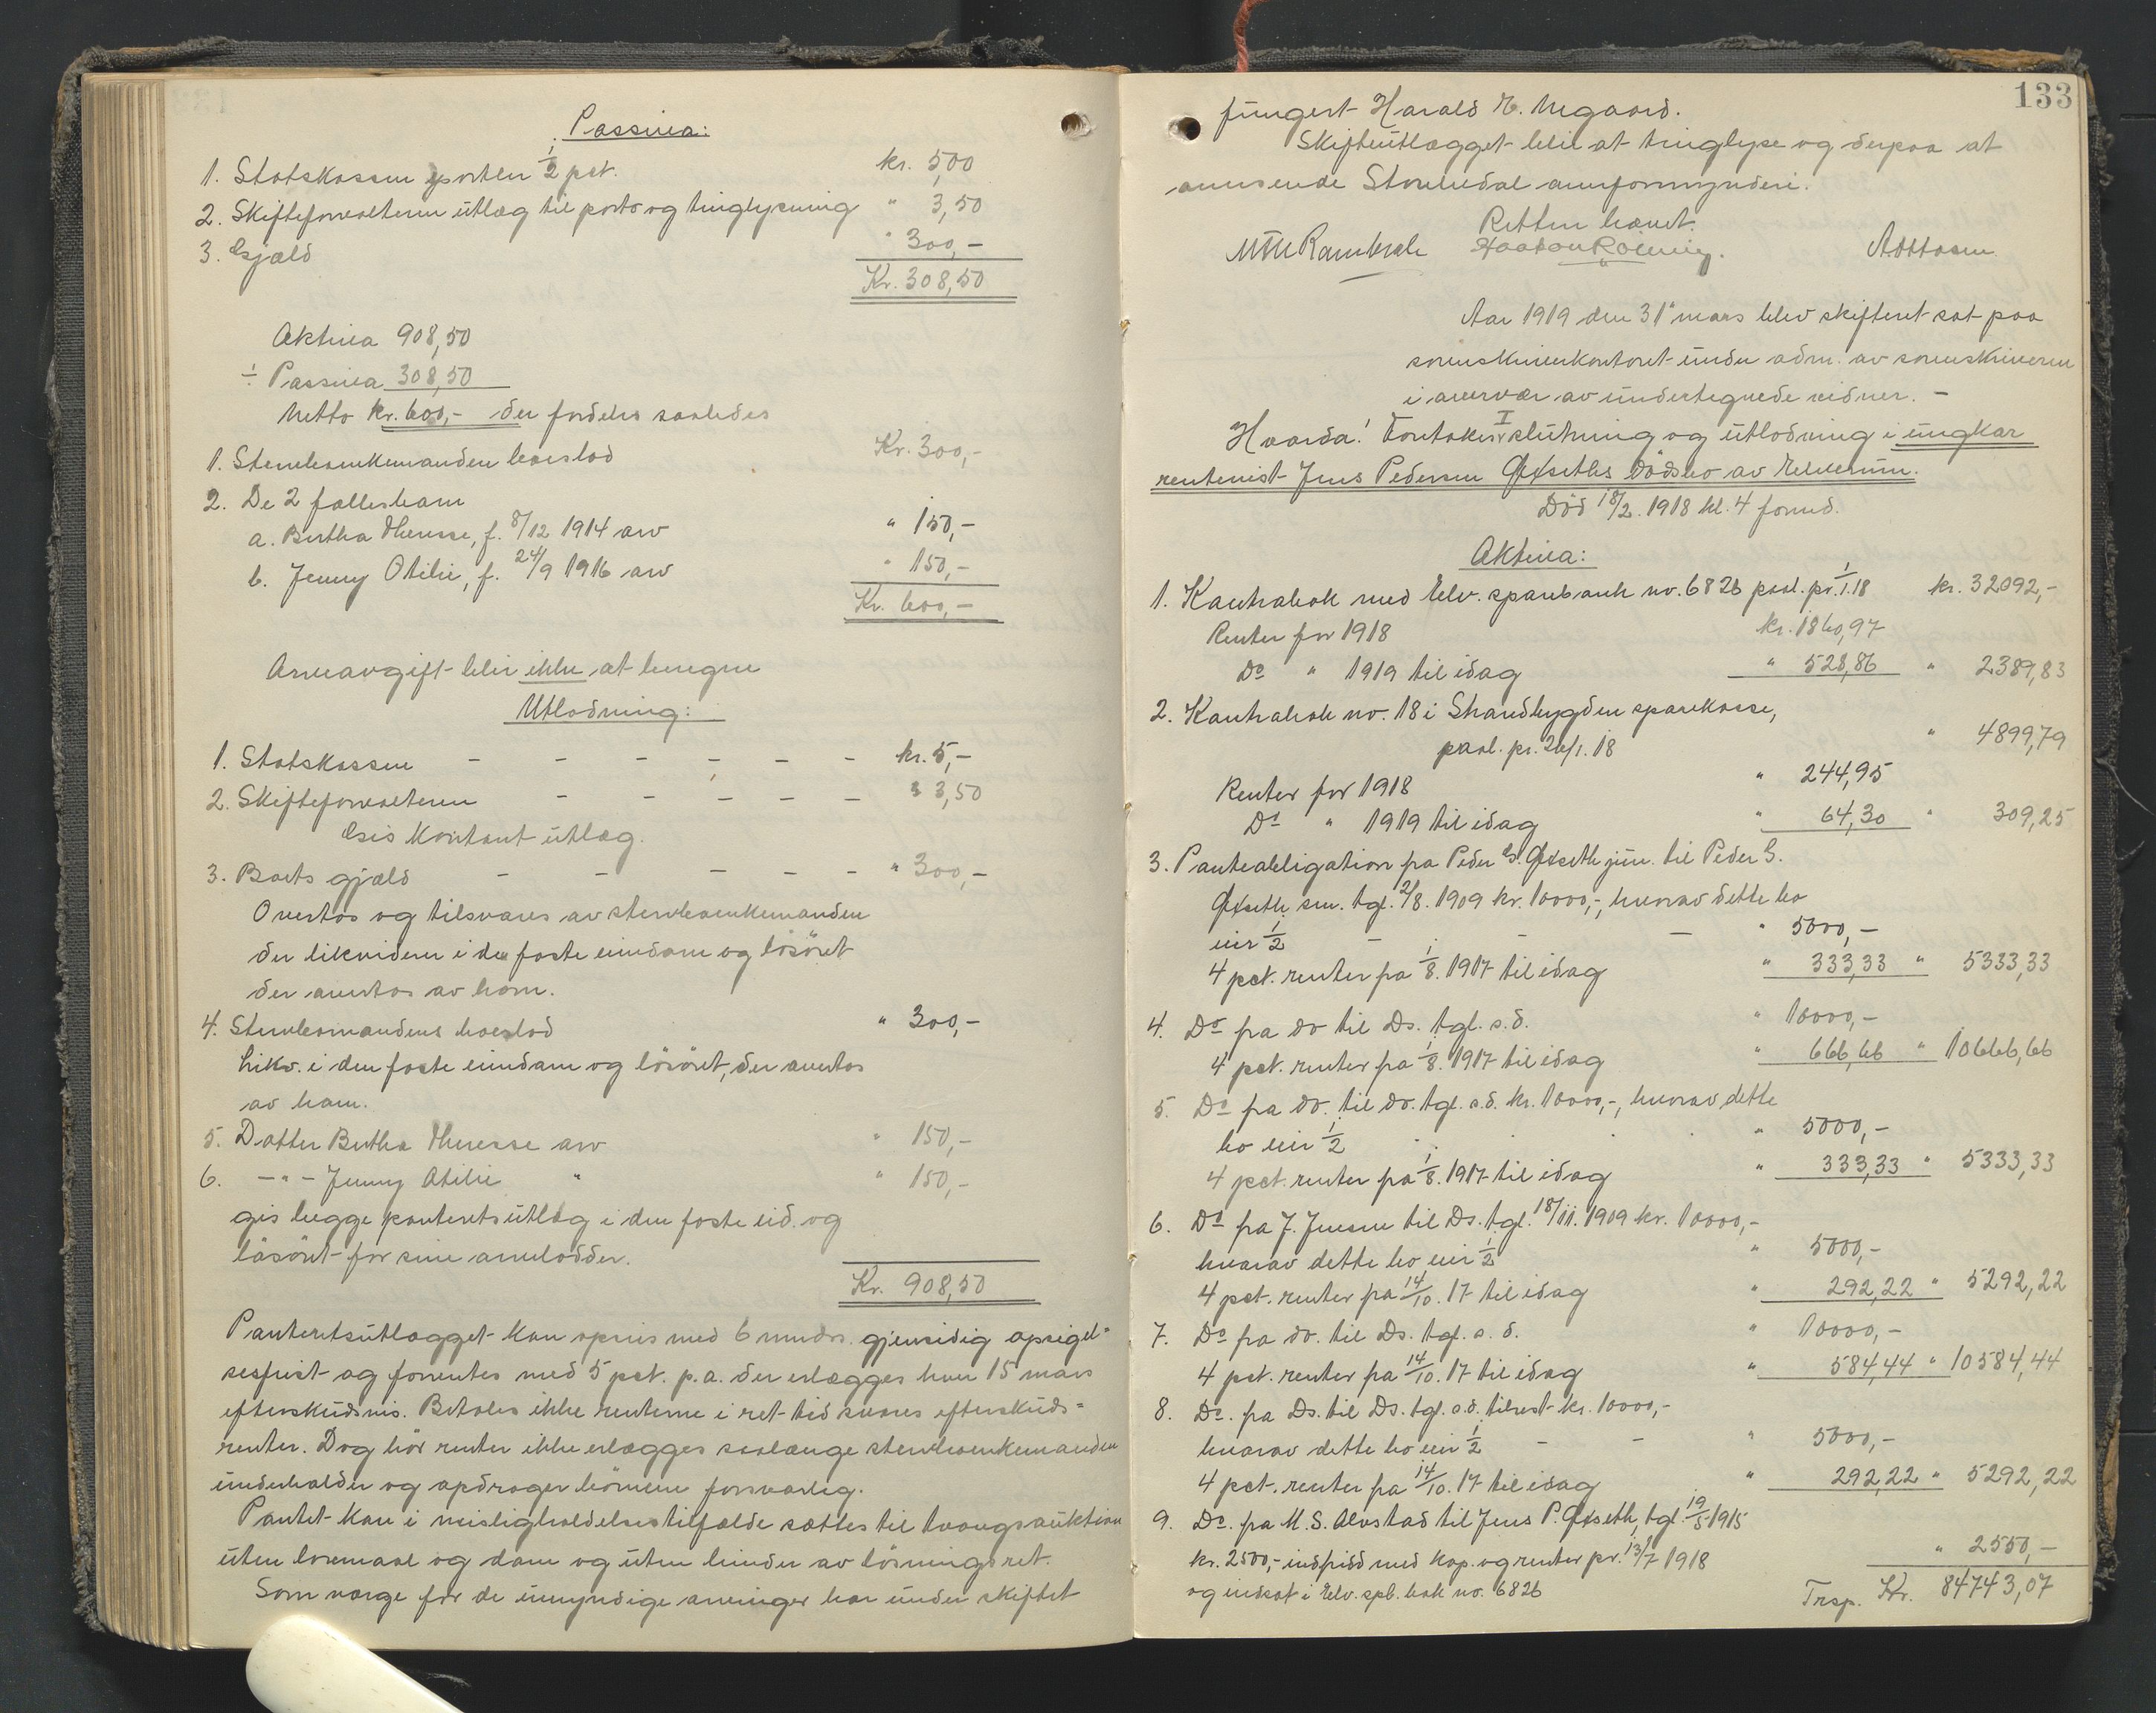 Passiva:
1. Statskassen sportler 1/2 pct. kr. 5,00
2. Skifteforvalteren utlæg til porto og tinglysning " 3,50
3. Gjæld " 300,-
Kr. 308,50
Aktiva 908,50
÷ Passiva 308,50
Netto kr. 600,- der fordeles saaledes
1. Stervboenkemanden boeslod Kr. 300,-
2. De 2 fællesbarn
a. Bertha Therese, f. 8/12 1914 arv " 150,-
b. Jenny Otilie, f. 24/9 1916 arv " 150,-
Kr. 600,-
Arveavgift blir ikke at beregne
Utlodning:
1. Statskassen - - - - - - kr. 5,-
2. Skifteforvalteren - - - - - " 3,50
Gis kontant utlæg.
3. Boets gjæld - - - - - " 300,-
Overtas og tilsvares av stervboenkemanden
der likvideres i den faste eiendom og løsøret
der overtas av ham.
4. Stervbomandens boeslod " 300,-
Likv. i den faste eiendom og løsøret, der overtas
av ham.
5. Datter Bertha Therese arv " 150,-
6. -"- Jenny Otilie " " 150,-
gis begge panteretsutlæg i den faste eid. og
løsøret for sine arvelodder.
Kr. 908,50
Panteretsutlægget kan opsies med 6 mndrs. gjensidig opsigel=
sesfrist og forrentes med 5 pct. p.a. der erlægges hver 15 mars
efterskudsvis. Betales ikke renterne i ret tid svares efterskuds=
renter. Dog bör renter ikke erlægges saalænge stervboenkemanden
underholder og opdrager börnene forsvarlig.
Pantet kan i misligholdelsestilfælde sættes til tvangsauktion
uten lovmaal og dom og uten hinder av løsningsret.
Som verge for de umyndige arvinger har under skiftet
133
fungert Harald E. Negaard.
Skifteutlægget blir at tinglyse og derpaa at
anvisende Storelvedal overformynderi.
Retten hævet.
Aar 1919 den 31' mars blev skifteret sat paa
sorenskriverkontoret under adm. av sorenskriveren
i overvær av undertegnede vidner. -
Hvorda! I Foretokes slutning og utlodning i ungkar
rentenist Jens Pedersen Gjxseths dødsbo av Elverum.
Död 18/2. 1918 kl. 4 formd.
Aktiva:
1. Kontrabok med Elv. sparebank no. 6826 paal. pr. 1/1.18 kr. 32092,-
Renter for 1918 kr. 1860,97
Do " 1919 til idag " 528,86 " 2389,83
2. Kontrabok no. 18 i Strandbygden sparekasse,
paal. pr. 26/1. 18 " 4899,79
Renter for 1918 " 244,95
Do " 1919 til idag " 64,30 " 309,25
3. Panteobligation fra Peder G. Gjxseth jun. til Peder G.
Gjxseth sen. tgl. 2/8. 1909 kr. 10000,-, hvorav dette bo
eier 1/2 - - - " 5000,-
4 pct. renter fra 1/8. 1917 til idag " 333,33 " 5333,33
4. Do fra do til Ds. tgl. s.d. " 10000,-
4 pct. renter fra 1/8. 1917 til idag " 666,66 " 10666,66
5. Do fra do. til do. tgl. s.d. kr. 10000,-, hvorav dette
bo eier 1/2 " 5000,-
4 pct. renter fra 1/8. 1917 til idag " 333,33 " 5333,33
6. Do fra J. Jensen til Ds. tgl. 18/11. 1909 kr. 10000,-
hvorav dette bo eier 1/2 " 5000,-
4 pct. renter fra 14/10. 17 til idag " 292,22 " 5292,22
7. Do fra do. til Ds. tgl. s.d. " 10000,-
4 pct. renter fra 14/10. 17 til idag " 584,44 " 10584,44
8. Do. fra Ds. til Ds. tgl. s.d. tilrest kr. 10000,-
hvorav dette bo eier 1/2 - - " 5000,-
4 pct. renter fra 14/10. 17 til idag " 292,22 " 5292,22
9. Do. fra M. S. Alvstad til Jens P. Gjxseth, tgl. 19/5 1915
kr. 2500,- indfridd med kap. og renter pr. 13/7 1918 " 2550,-
og indsat i Elv. spb. bok no. 6826
Trsp. Kr. 84743,07